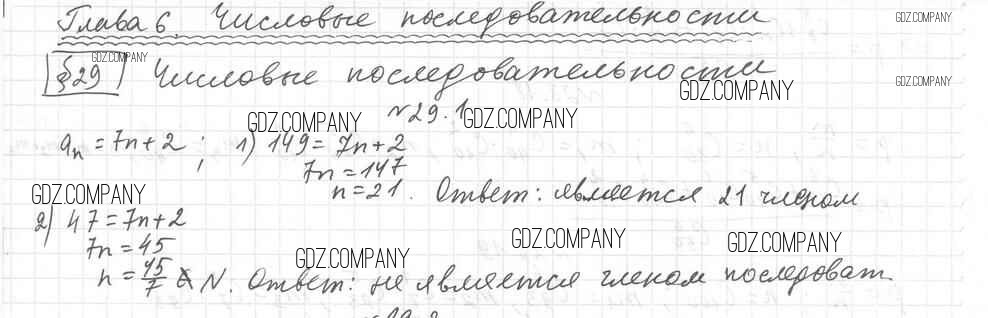 Глава 6. Числовые последовательности
GDZ.COMPANY
§29 Числовые последовательности
GDZ.COMPANY
GDZ.COMPANY
GDZ.COMPANY
№29.1
GDZ.COMPANY GDZ.COMPANY
aₙ = 7n + 2 ; 1) 149 = 7n + 2
7n = 147
n = 21. Ответ: является 21 членом
GDZ.COMPANY
2) 47 = 7n + 2
7n = 45
GDZ.COMPANY GDZ.COMPANY GDZ.COMPANY
n = 45/7 ∉ N. Ответ: не является членом последоват.